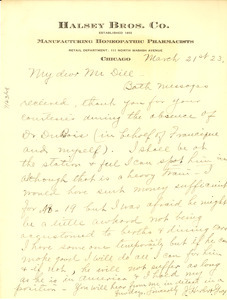 HALSEY BROS. CO.
ESTABLISHED 1855
MANUFACTURING HOMEOPATHIC PHARMACISTS
RETAIL DEPARTMENT: 111 NORTH WABASH AVENUE
CHICAGO
March 21st 23
My dear Mr Dill -
Both messages
received, thank you for your
during the absence of
Dr DuBois (in behalf of Francique
and myself). I shall be at
the station & feel I can spot him in
although that is a heavy train - I
would have sent money sufficient
for No - 19 but I was afraid he might
be a little awkward not being
accustomed to berths & dining cars
I have some one temporarily but if he can
make good I will do all I can for him
& if not, he will not as long
as he is in America & I had my
position - You will hear from me in detail in a